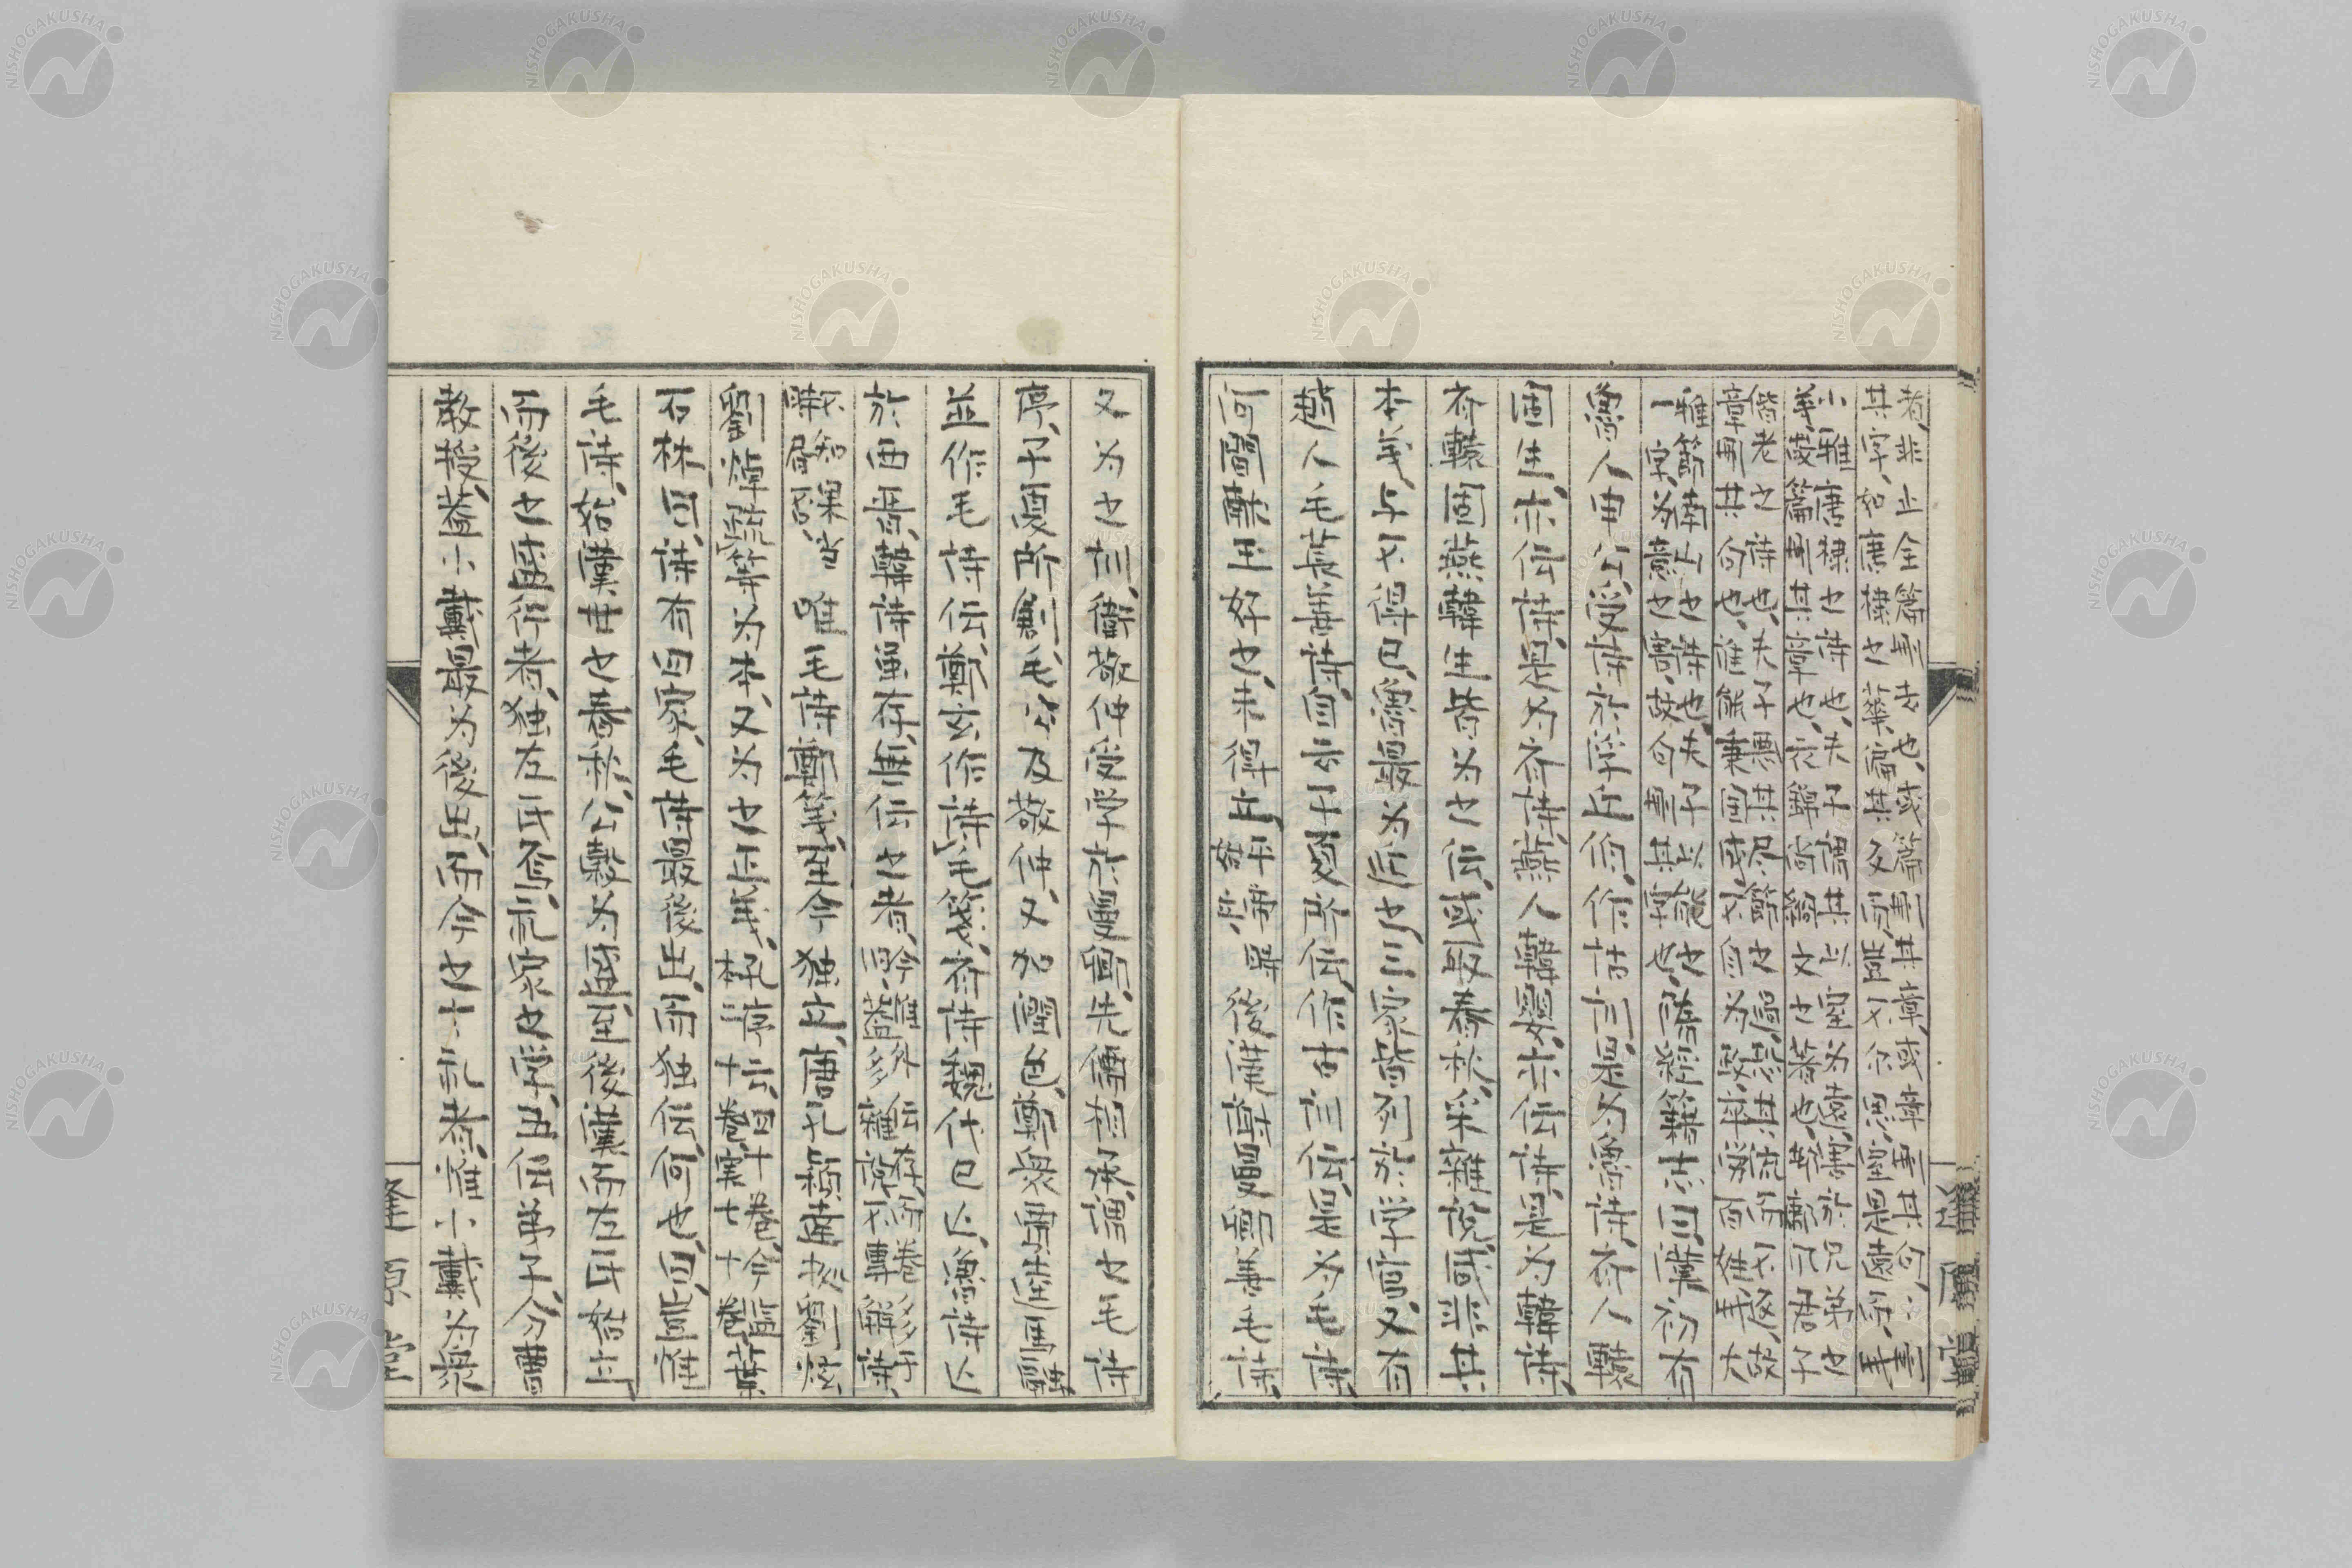 者、非止全篇刪去也、或篇刪其章、或章刪其句、句刪
其字、如唐棣之華、偏其反而、豈不尓思、室是遠而、此
小雅唐棣之詩也、夫子謂其以室为遠、害於兄弟之
義、故篇刪其章也、衣錦尚絅、文之著也、此鄘風君子
偕老之詩也、夫子悪其尽飾之過、恐其流而不返、故
章刪其句也、誰能秉国成、不自为政、卒労百姓、此小
雅節南山之詩也、夫子以能之
一字、为意之害、故句刪其字也、
隋経籍志曰、漢初有
魯人申公、受詩於浮丘伯、作詁訓、是为魯詩、斉人轅
固生、亦伝詩、是为斉詩、燕人韓嬰、亦伝詩、是为韓詩
斉轅固燕韓生皆为之伝、或取春秋、采雑説、咸非其
本義、与不得已、魯最为近之、三家皆列於学官、又有
趙人毛萇善詩、自云子夏所伝、作古訓伝、是为毛詩
河間献王好之、未得立、
後漢謝曼卿善毛詩
又为之訓、衛敬仲受学於曼卿、先儒相承、謂之毛詩
序、子夏所創、毛公及敬仲、又加潤色、鄭衆賈逵馬融
並作毛詩伝、鄭玄作詩毛箋、斉詩魏代已亡、魯詩亡
於西晋、韓詩虽存、無伝之者、
今雖外伝存
唯毛詩鄭箋、至今独立、唐孔穎達拠劉炫
劉焯疏等为本、又为之正義、
石林曰、詩有四家、毛詩最後出、而独伝、何也、曰、豈唯
毛詩、始漢世之春秋、公穀为盛、至後漢而左氏始立
而後之盛行者、独左氏焉、礼家之学、五伝弟子、分曹
教授、蓋小戴最为後出、而今之言礼者、唯小戴为衆